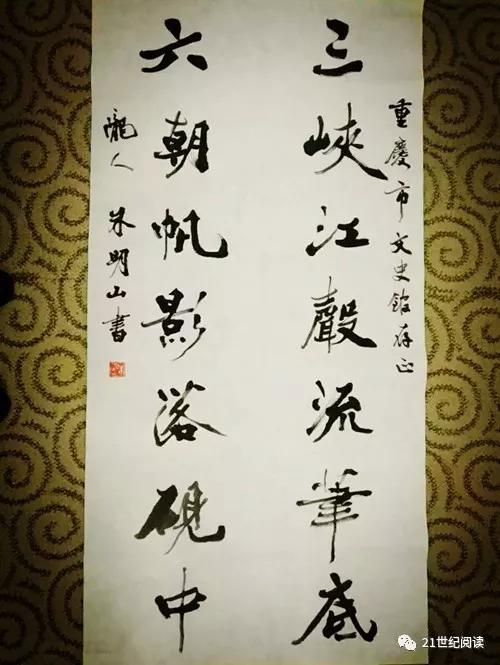 重慶市文史館存正
三峽江聲流筆底
六朝帆影落硯中
隴人 朱明山書
21世纪阅读